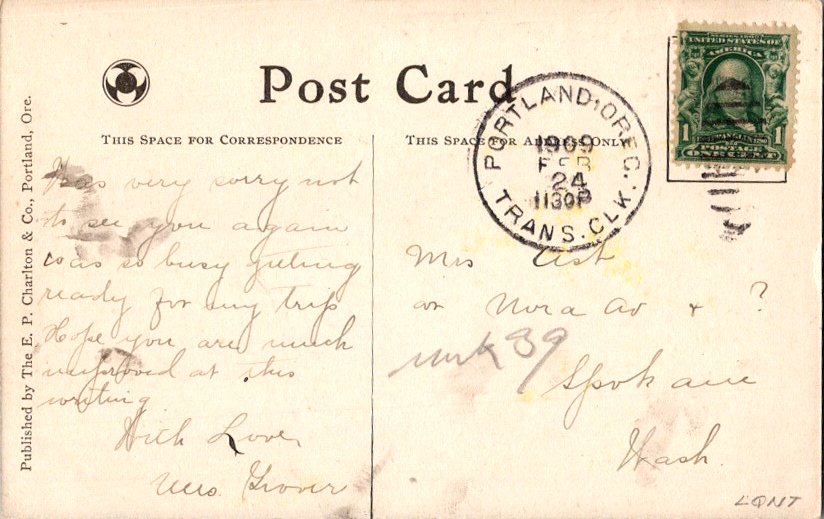 Post Card
Published by The E. P. Charlton & Co., Portland, Ore.
THIS SPACE FOR CORRESPONDENCE
THIS SPACE FOR ADDRESS ONLY
PORTLAND, OREG.
1909
FEB
24
1130P
TRANS. CLK.
SERIES 1902
UNITED STATES OF
AMERICA
1 1
POSTAGE
ONE CENT
Was very sorry not
to see you again
was so busy getting
ready for my trip
Hope you are much
improved at this
writing
With Love,
Mrs. Grover
Mrs Ash
on Nora Av & ?
Spokane
Wash.
unk 89
LQNT